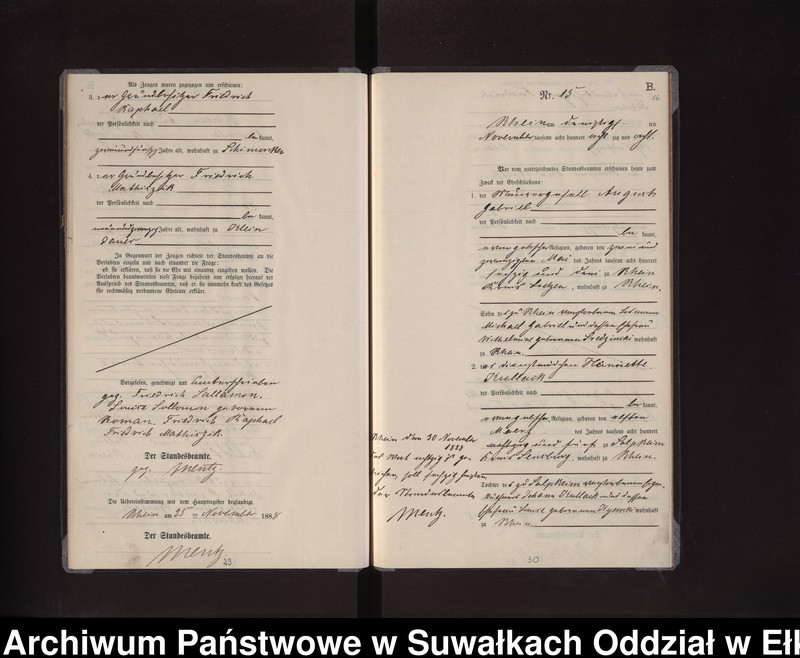 Als Zeugen waren zugezogen und erschienen:
3. der Grundbesitzer Friedrich
Raphael
der Persönlichkeit nach
be kannt,
Jahre alt, wohnhaft zu Schimonken
4. der Grundbesitzer Friedrich
Mathiszik
der Persönlichkeit nach
be kannt,
Jahre alt, wohnhaft zu Klein
In Gegenwart der Zeugen richtete der Standesbeamte an die
Verlobten einzeln und nach einander die Frage:
ob sie erklären, daß sie die Ehe mit einander eingehen wollen. Die
Verlobten beantworteten diese Frage bejahend und erfolgte hierauf der
Ausspruch des Standesbeamten, daß er sie nunmehr kraft des Gesetzes
für rechtmäßig verbundene Eheleute erkläre.
Vorgelesen, genehmigt und unterschrieben
gez. Friedrich Sallamon.
Louise Sallomon geborene
Roman. Friedrich Raphael
Friedrich Mathiszik.
Der Standesbeamte.
gez. Mentz.
Die Uebereinstimmung mit dem Hauptregister beglaubigt.
Rhein am 25 ten November 1888
Der Standesbeamte.
Mentz.
29
B.
Nr. 15
16
Rhein am dreißigsten
November tausend acht hundert acht zig und acht.
Vor dem unterzeichneten Standesbeamten erschienen heute zum
Zweck der Eheschließung:
1. der Maurergesell August
Gabriel
der Persönlichkeit nach
be kannt,
evangelischer Religion, geboren den zwei und
zwanzigsten Mai des Jahres tausend acht hundert
sechzig und drei zu Rhein
Kreis Loetzen, wohnhaft zu Rhein.
Sohn des zu Rhein verstorbenen Losmann
Michael Gabriel und dessen Ehefrau
Wilhelmine geborenen wohnhaft
zu Rhein.
2. das Dienstmädchen Henriette
Kullack
der Persönlichkeit nach
be kannt,
evangelischer Religion, geboren den elften
Maerz des Jahres tausend acht hundert
sechszig und fünf zu Salpkeim
Kreis Sensburg, wohnhaft zu Rhein.
Tochter des zu Salpkeim verstorbenen
Johann Kullack und dessen
Ehefrau Louise geborenen wohnhaft
zu Rhein.
Rhein den 30 November
1888
Das Wort achtzig ist ge
strichen, soll sechszig
Der Standesbeamte
Mentz.
30
Archiwum Państwowe w Suwałkach Oddział w Ełk